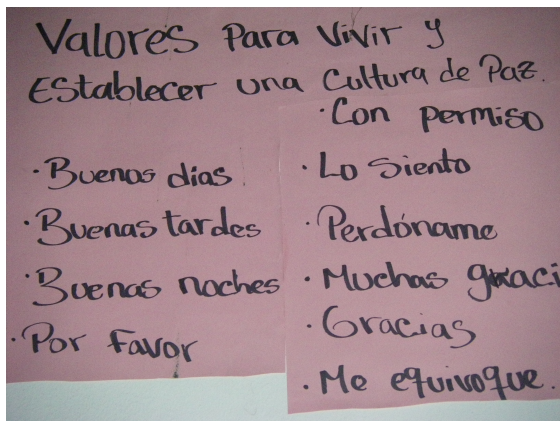 Valores Para Vivir y
Establecer una Cultura de Paz.
· Buenos dias
· Buenas tardes
· Buenas noches
· Por Favor
· Con permiso
· Lo siento
· Perdóname
· Muchas graci
· Gracias
· Me equivoque.